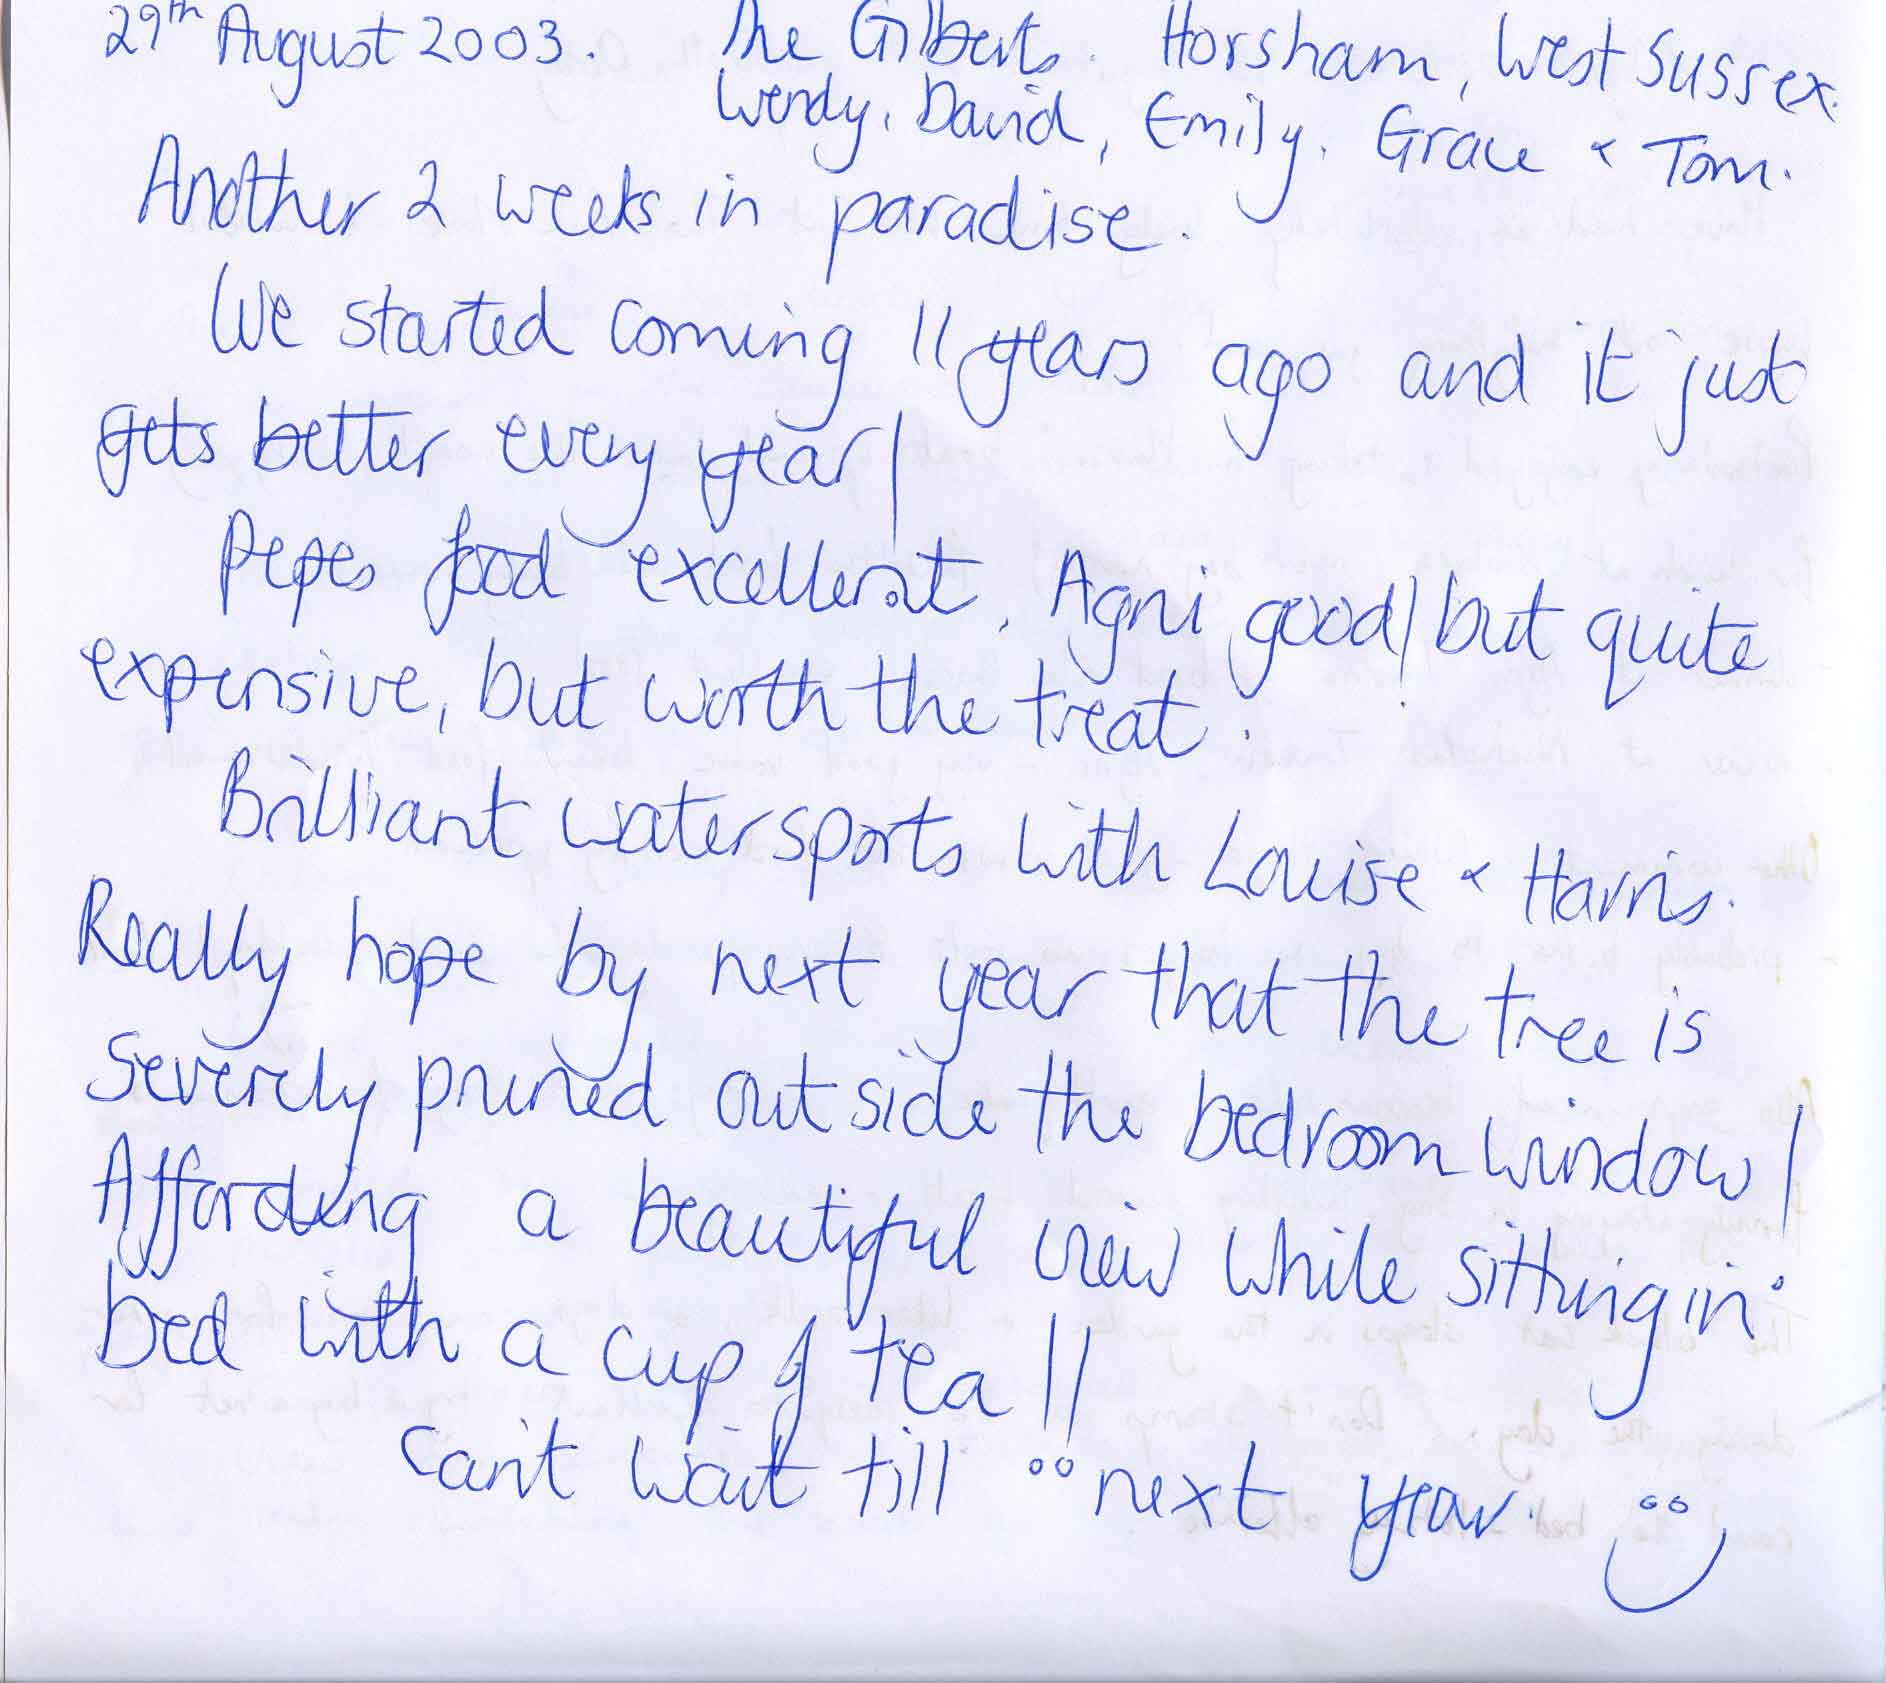 29th August 2003. The Gilberts. Horsham, West Sussex.
Wendy, David, Emily, Grace & Tom.
Another 2 weeks in paradise.
We started coming 11 years ago and it just
gets better every year!
Pepes food excellent, Agni good! but quite
expensive, but worth the treat.
Brilliant watersports with Louise & Harris.
Really hope by next year that the tree is
severely pruned outside the bedroom window!
Affording a beautiful view while sitting in
bed with a cup of tea!!
Can't wait till next year.